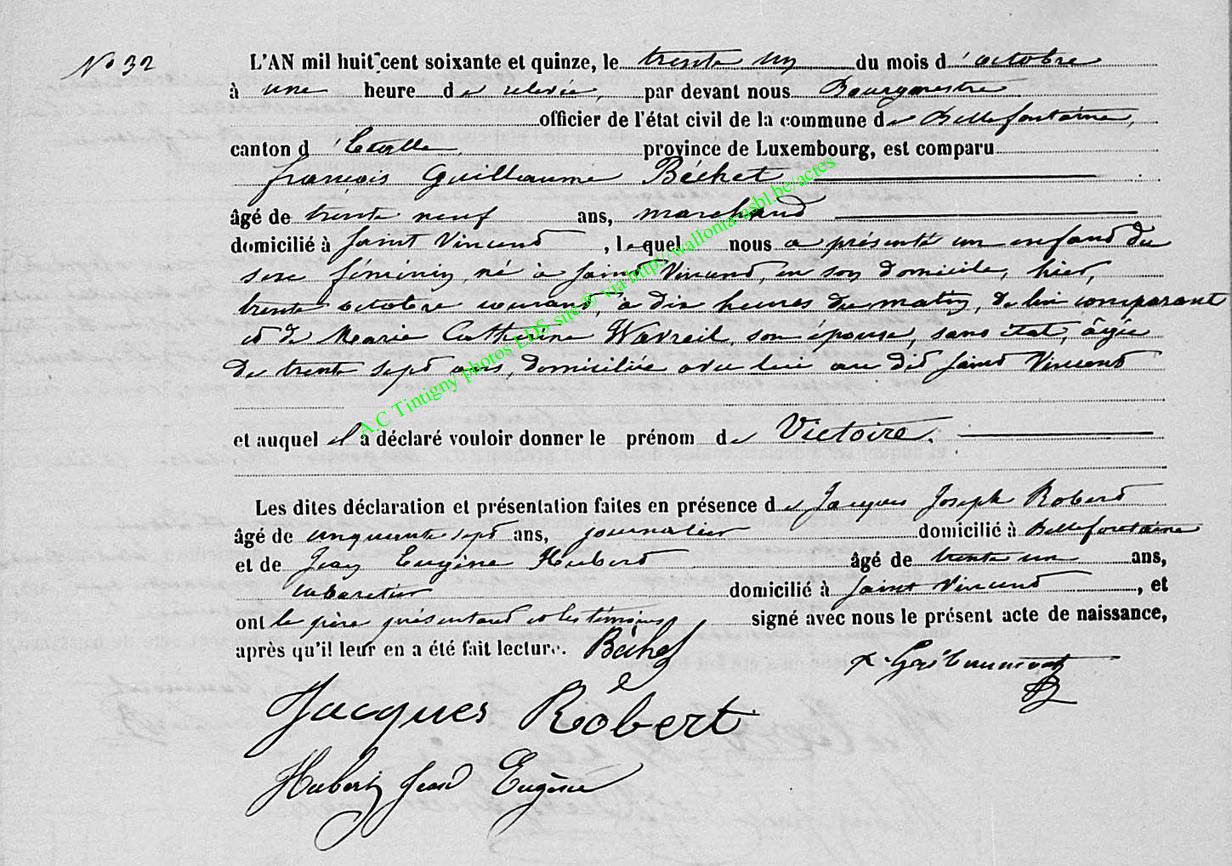 No 32
L'AN mil huit cent soixante et quinze, le trente un du mois d'octobre
à une heure de relevée, par devant nous Bourgmestre
officier de l'état civil de la commune de Bellefontaine,
canton d'Etalle province de Luxembourg, est comparu
françois Guillaume Béchet
âgé de trente neuf ans, marchand
domicilié à Saint Vincent, lequel nous a présenté un enfant du
sexe féminin, né à Saint Vincent, en son domicile, hier,
trente octobre courant, à dix heures du matin, de lui comparant
et de Marie Catherine Wavreil, son épouse, sans état, âgée
de trente sept ans, domiciliée avec lui au dit Saint Vincent
et auquel il a déclaré vouloir donner le prénom de Victoire.
Les dites déclaration et présentation faites en présence de Jacques Joseph Robert
âgé de cinquante sept ans, journalier domicilié à Bellefontaine
et de Jean Eugène Hubert âgé de trente un ans,
cabaretier domicilié à Saint Vincent, et
ont le père présentant et les témoins signé avec nous le présent acte de naissance,
après qu'il leur en a été fait lecture. Béchet
Jacques Robert
Hubert Jean Eugène
A.C Tintigny photos EDS sur le via http://wallonia-asbl.be/actes